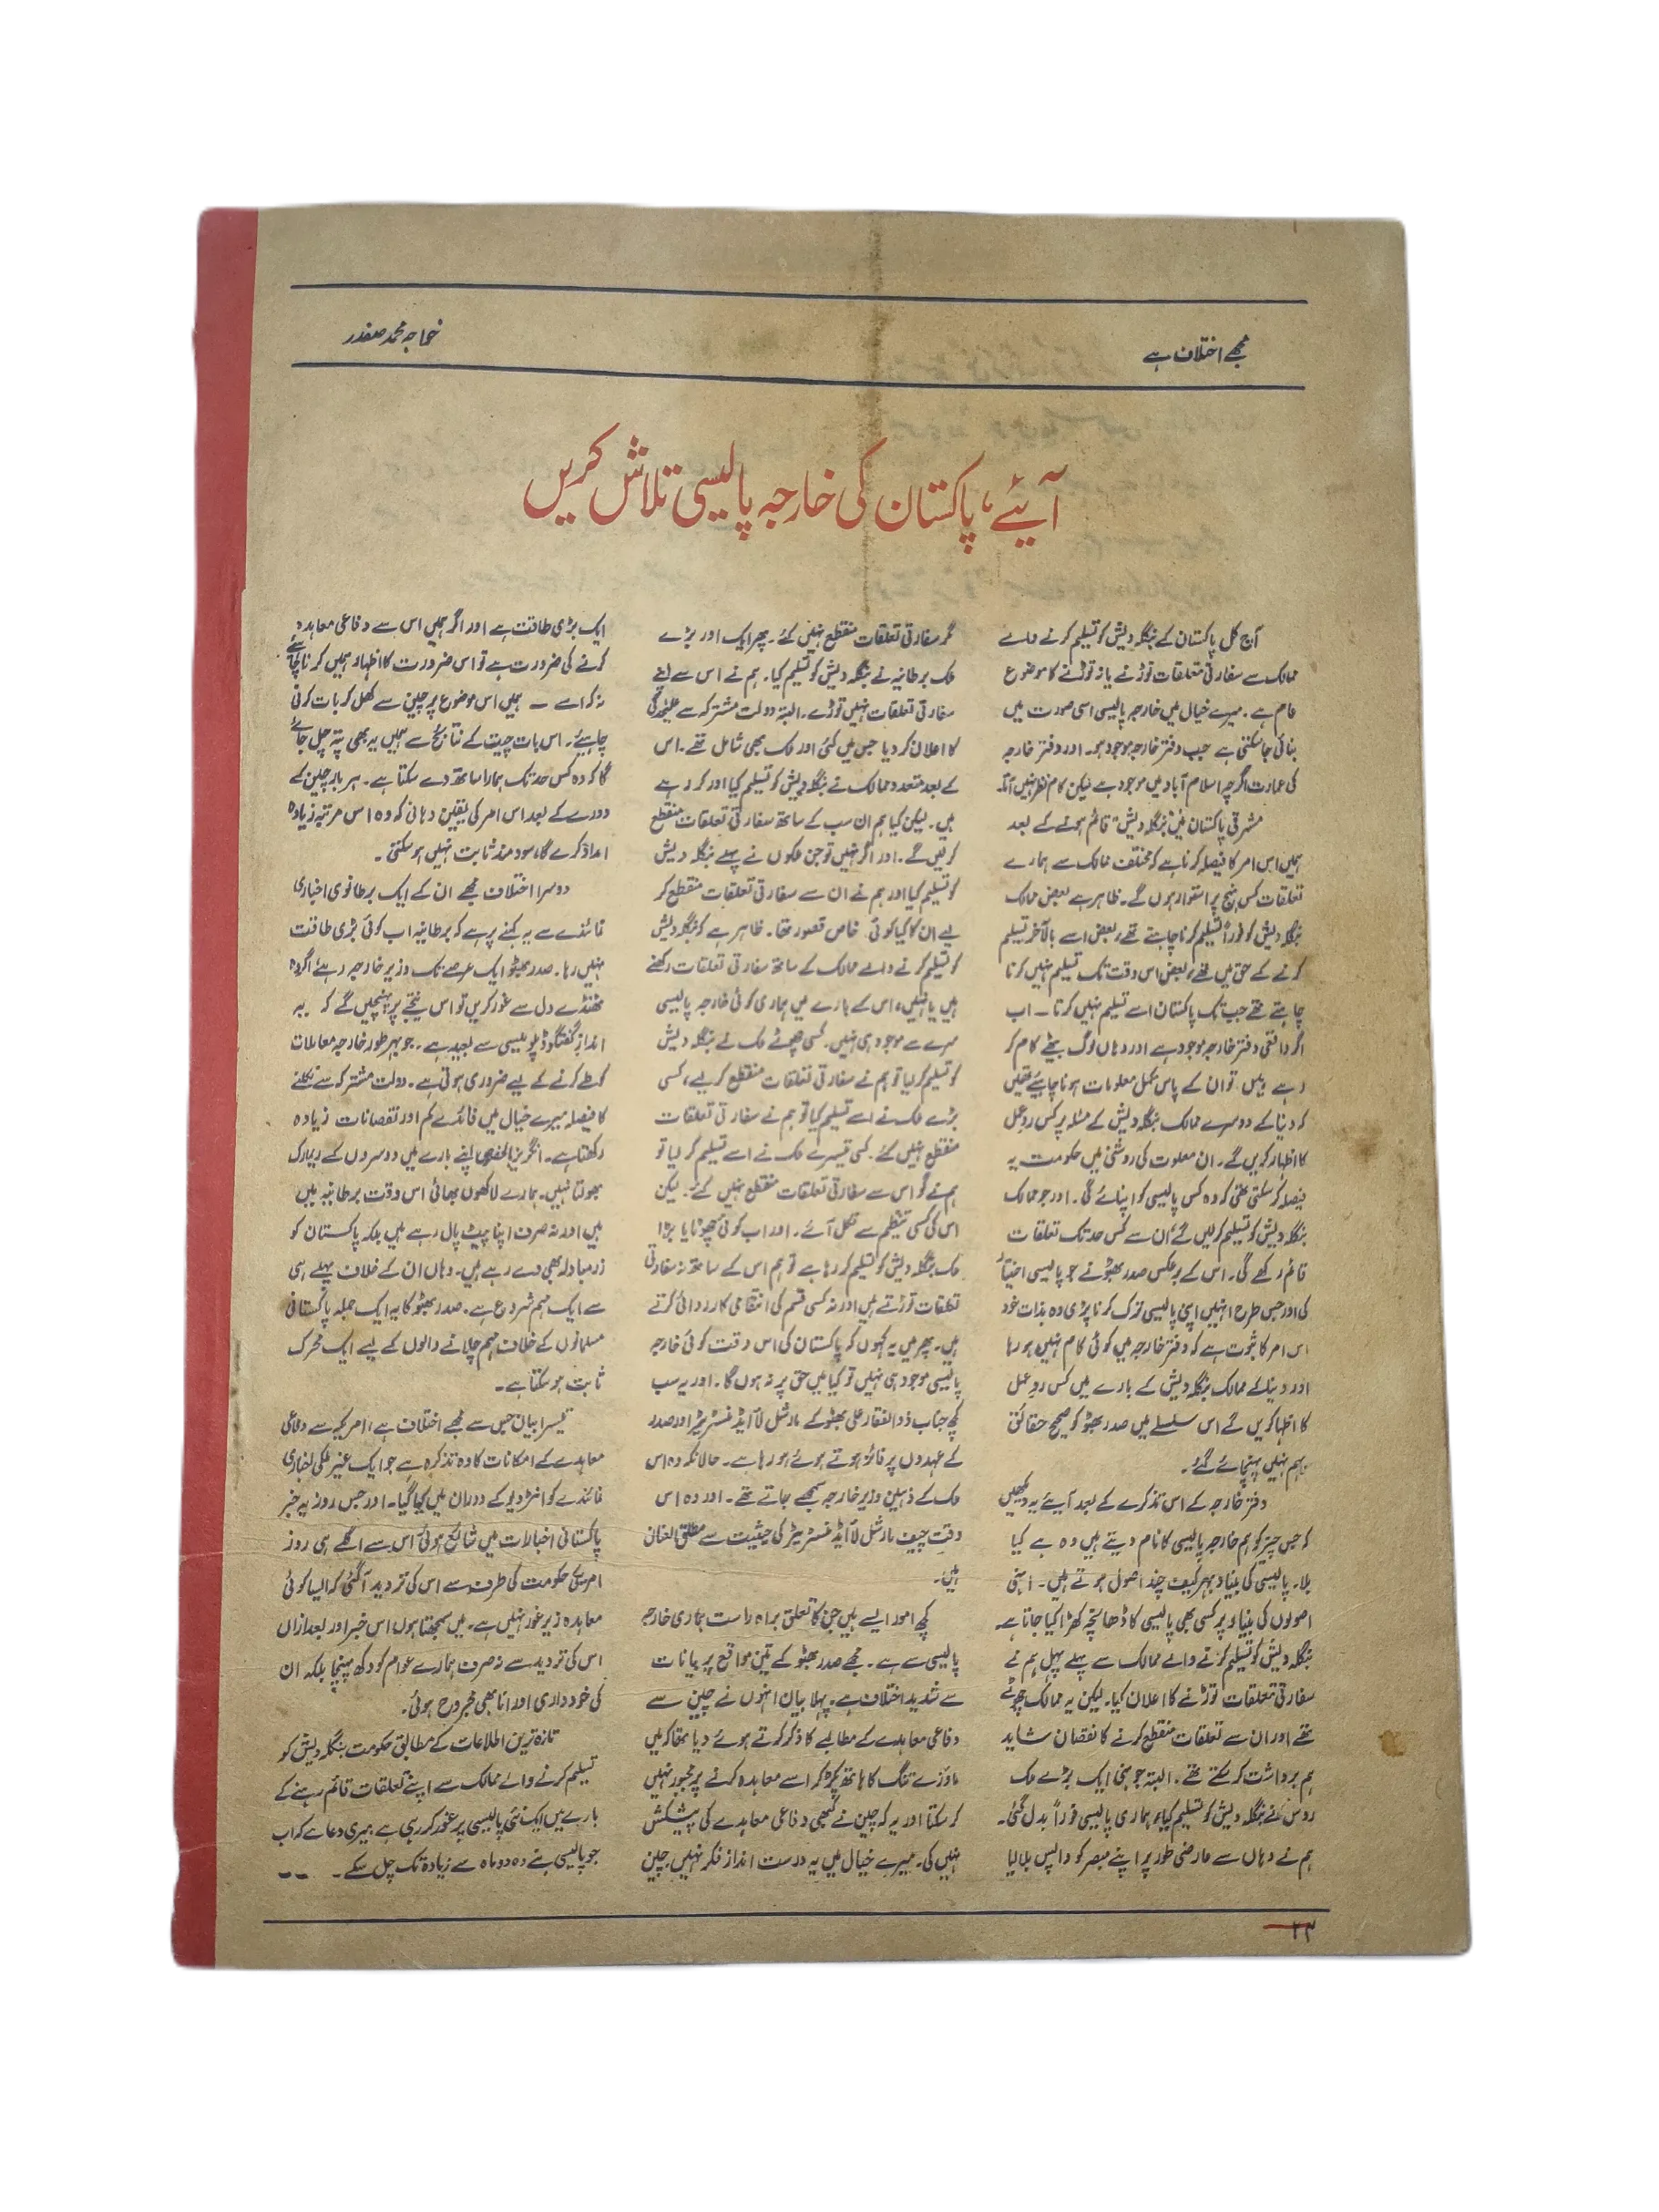 مجھے اختلاف ہے
خواجہ محمد صفدر
آئیے، پاکستان کی خارجہ پالیسی تلاش کریں
آج کل پاکستان کے بنگلہ دیش کو تسلیم کرنے والے
ممالک سے سفارتی تعلقات توڑنے یا نہ توڑنے کا موضوع
عام ہے۔ میرے خیال میں خارجہ پالیسی اسی صورت میں
بنائی جا سکتی ہے جب دفتر خارجہ موجود ہو۔ اور دفتر خارجہ
کی عمارت اگرچہ اسلام آباد میں موجود ہے لیکن کام نظر نہیں آتا۔
مشرقی پاکستان میں "بنگلہ دیش" قائم ہونے کے بعد
ہمیں اس امر کا فیصلہ کرنا ہے کہ مختلف ممالک سے ہمارے
تعلقات کس نہج پر استوار ہوں گے۔ ظاہر ہے بعض ممالک
بنگلہ دیش کو فوراً تسلیم کرنا چاہتے تھے، بعض اسے بالآخر تسلیم
کرنے کے حق میں تھے، بعض اس وقت تک تسلیم نہیں کرنا
چاہتے تھے جب تک پاکستان اسے تسلیم نہیں کرتا۔ اب
اگر واقعی دفتر خارجہ موجود ہے اور وہاں لوگ بیٹھے کام کر
رہے ہیں تو ان کے پاس مکمل معلومات ہونا چاہیئے تھیں
کہ دنیا کے دوسرے ممالک بنگلہ دیش کے مسئلہ پر کس ردِ عمل
کا اظہار کریں گے۔ ان معلومات کی روشنی میں حکومت یہ
فیصلہ کر سکتی تھی کہ وہ کس پالیسی کو اپنائے گی۔ اور جو ممالک
بنگلہ دیش کو تسلیم کر لیں گے ان سے کس حد تک تعلقات
قائم رکھے گی۔ اس کے برعکس صدر بھٹو نے جو پالیسی اختیار
کی اور جس طرح انہیں اپنی پالیسی ترک کرنا پڑی وہ بذات خود
اس امر کا ثبوت ہے کہ دفتر خارجہ میں کوئی کام نہیں ہو رہا
اور دنیا کے ممالک بنگلہ دیش کے بارے میں کس ردِ عمل
کا اظہار کریں گے اس سلسلے میں صدر بھٹو کو صحیح حقائق
بہم نہیں پہنچائے گئے۔
دفتر خارجہ کے اس تذکرے کے بعد آیئے یہ دیکھیں
کہ جس چیز کو ہم خارجہ پالیسی کا نام دیتے ہیں وہ ہے کیا
بلا۔ پالیسی کی بنیاد بہر کیف چند اصول ہوتے ہیں۔ انہی
اصولوں کی بنیاد پر کسی بھی پالیسی کا ڈھانچہ کھڑا کیا جاتا ہے۔
بنگلہ دیش کو تسلیم کرنے والے ممالک سے پہلے پہل ہم نے
سفارتی تعلقات توڑنے کا اعلان کیا۔ لیکن یہ ممالک چھوٹے
تھے اور ان سے تعلقات منقطع کرنے کا نقصان شاید
ہم برداشت کر سکتے تھے۔ البتہ جونہی ایک بڑے ملک
روس نے بنگلہ دیش کو تسلیم کیا، ہماری پالیسی فوراً بدل گئی۔
ہم نے وہاں سے عارضی طور پر اپنے مبصر کو واپس بلا لیا
مگر سفارتی تعلقات منقطع نہیں کئے۔ پھر ایک اور بڑے
ملک برطانیہ نے بنگلہ دیش کو تسلیم کیا۔ ہم نے اس سے اپنے
سفارتی تعلقات نہیں توڑے۔ البتہ دولت مشترکہ سے علیحدگی
کا اعلان کر دیا جس میں کئی اور ملک بھی شامل تھے۔ اس
کے بعد متعدد ممالک نے بنگلہ دیش کو تسلیم کیا اور کر رہے
ہیں۔ لیکن کیا ہم ان سب کے ساتھ سفارتی تعلقات منقطع
کر لیں گے۔ اور اگر نہیں تو جن ملکوں نے پہلے بنگلہ دیش
کو تسلیم کیا اور ہم نے ان سے سفارتی تعلقات منقطع کر
لیے ان کا کیا کوئی خاص قصور تھا۔ ظاہر ہے کہ بنگلہ دیش
کو تسلیم کرنے والے ممالک کے ساتھ سفارتی تعلقات رکھنے
ہیں یا نہیں، اس کے بارے میں ہماری کوئی خارجہ پالیسی
سرے سے موجود ہی نہیں۔ کسی چھوٹے ملک نے بنگلہ دیش
کو تسلیم کر لیا تو ہم نے سفارتی تعلقات منقطع کر لیے، کسی
بڑے ملک نے اسے تسلیم کیا تو ہم نے سفارتی تعلقات
منقطع نہیں کئے۔ کسی تیسرے ملک نے اسے تسلیم کر لیا تو
ہم نے گو اس سے سفارتی تعلقات منقطع نہیں کئے۔ لیکن
اس کی کسی تنظیم سے نکل آئے۔ اور اب کوئی چھوٹا یا بڑا
ملک بنگلہ دیش کو تسلیم کر رہا ہے تو ہم اس کے ساتھ نہ سفارتی
تعلقات توڑتے ہیں اور نہ کسی قسم کی انتقامی کارروائی کرتے
ہیں۔ پھر میں یہ کہوں کہ پاکستان کی اس وقت کوئی خارجہ
پالیسی موجود ہی نہیں تو کیا میں حق پر نہ ہوں گا۔ اور یہ سب
کچھ جناب ذوالفقار علی بھٹو کے مارشل لا ایڈمنسٹریٹر اور صدر
کے عہدوں پر فائز ہوتے ہوئے ہو رہا ہے۔ حالانکہ وہ اس
ملک کے ذہین وزیر خارجہ سمجھے جاتے تھے۔ اور وہ اس
وقت چیف مارشل لا ایڈمنسٹریٹر کی حیثیت سے مطلق العنان
ہیں۔
کچھ امور ایسے ہیں جن کا تعلق براہ راست ہماری خارجہ
پالیسی سے ہے۔ مجھے صدر بھٹو کے تین مواقع پر بیانات
سے شدید اختلاف ہے۔ پہلا بیان انہوں نے چین سے
دفاعی معاہدے کے مطالبے کا ذکر کرتے ہوئے دیا تھا کہ میں
ماؤزے تنگ کا ہاتھ پکڑ کر اسے معاہدہ کرنے پر مجبور نہیں
کر سکتا اور یہ کہ چین نے کبھی دفاعی معاہدے کی پیشکش
نہیں کی۔ میرے خیال میں یہ درست انداز فکر نہیں۔ چین
ایک بڑی طاقت ہے اور اگر ہمیں اس سے دفاعی معاہدہ
کرنے کی ضرورت ہے تو اس ضرورت کا اظہار ہمیں کرنا چاہئے
نہ کہ اسے ۔ ہمیں اس موضوع پر چین سے کھل کر بات کرنی
چاہیئے۔ اس بات چیت کے نتائج سے ہمیں یہ بھی پتہ چل جائے
گا کہ وہ کس حد تک ہمارا ساتھ دے سکتا ہے۔ ہر بار چین کے
دورے کے بعد اس امر کی یقین دہانی کہ وہ اس مرتبہ زیادہ
امداد کرے گا، سود مند ثابت نہیں ہو سکتی۔
دوسرا اختلاف مجھے ان کے ایک برطانوی اخباری
نمائندے سے یہ کہنے پر ہے کہ برطانیہ اب کوئی بڑی طاقت
نہیں رہا۔ صدر بھٹو ایک عرصے تک وزیر خارجہ رہے، اگر وہ
ٹھنڈے دل سے غور کریں تو اس نتیجے پر پہنچیں گے کہ یہ
انداز گفتگو ڈپلومیسی سے بعید ہے۔ جو بہر طور خارجہ معاملات
کے طے کرنے کے لیے ضروری ہوتی ہے۔ دولت مشترکہ سے نکلنے
کا فیصلہ میرے خیال میں فائدے کم اور نقصانات زیادہ
رکھتا ہے۔ انگریز بالخصوص اپنے بارے میں دوسروں کے ریمارک
بھولتا نہیں۔ ہمارے لاکھوں بھائی اس وقت برطانیہ میں
ہیں اور نہ صرف اپنا پیٹ پال رہے ہیں بلکہ پاکستان کو
زرمبادلہ بھی دے رہے ہیں۔ وہاں ان کے خلاف پہلے ہی
سے ایک مہم شروع ہے۔ صدر بھٹو کا یہ ایک جملہ پاکستانی
مسلمانوں کے خلاف مہم چلانے والوں کے لیے ایک محرک
ثابت ہو سکتا ہے۔
تیسرا بیان جس سے مجھے اختلاف ہے، امریکہ سے دفاعی
معاہدے کے امکانات کا وہ تذکرہ ہے جو ایک غیر ملکی اخباری
نمائندے کو انٹرویو کے دوران میں کیا گیا۔ اور جس روز یہ خبر
پاکستانی اخبارات میں شائع ہوئی اس سے اگلے ہی روز
امریکی حکومت کی طرف سے اس کی تردید آ گئی کہ ایسا کوئی
معاہدہ زیر غور نہیں ہے۔ میں سمجھتا ہوں اس خبر اور بعد ازاں
اس کی تردید سے نہ صرف ہمارے عوام کو دکھ پہنچا بلکہ ان
کی خود داری اور انا بھی مجروح ہوئی۔
تازہ ترین اطلاعات کے مطابق حکومت بنگلہ دیش کو
تسلیم کرنے والے ممالک سے اپنے تعلقات قائم رہنے کے
بارے میں ایک نئی پالیسی پر غور کر رہی ہے۔ میری دعا ہے کہ اب
جو پالیسی بنے وہ دو ماہ سے زیادہ تک چل سکے۔ --
۲۳